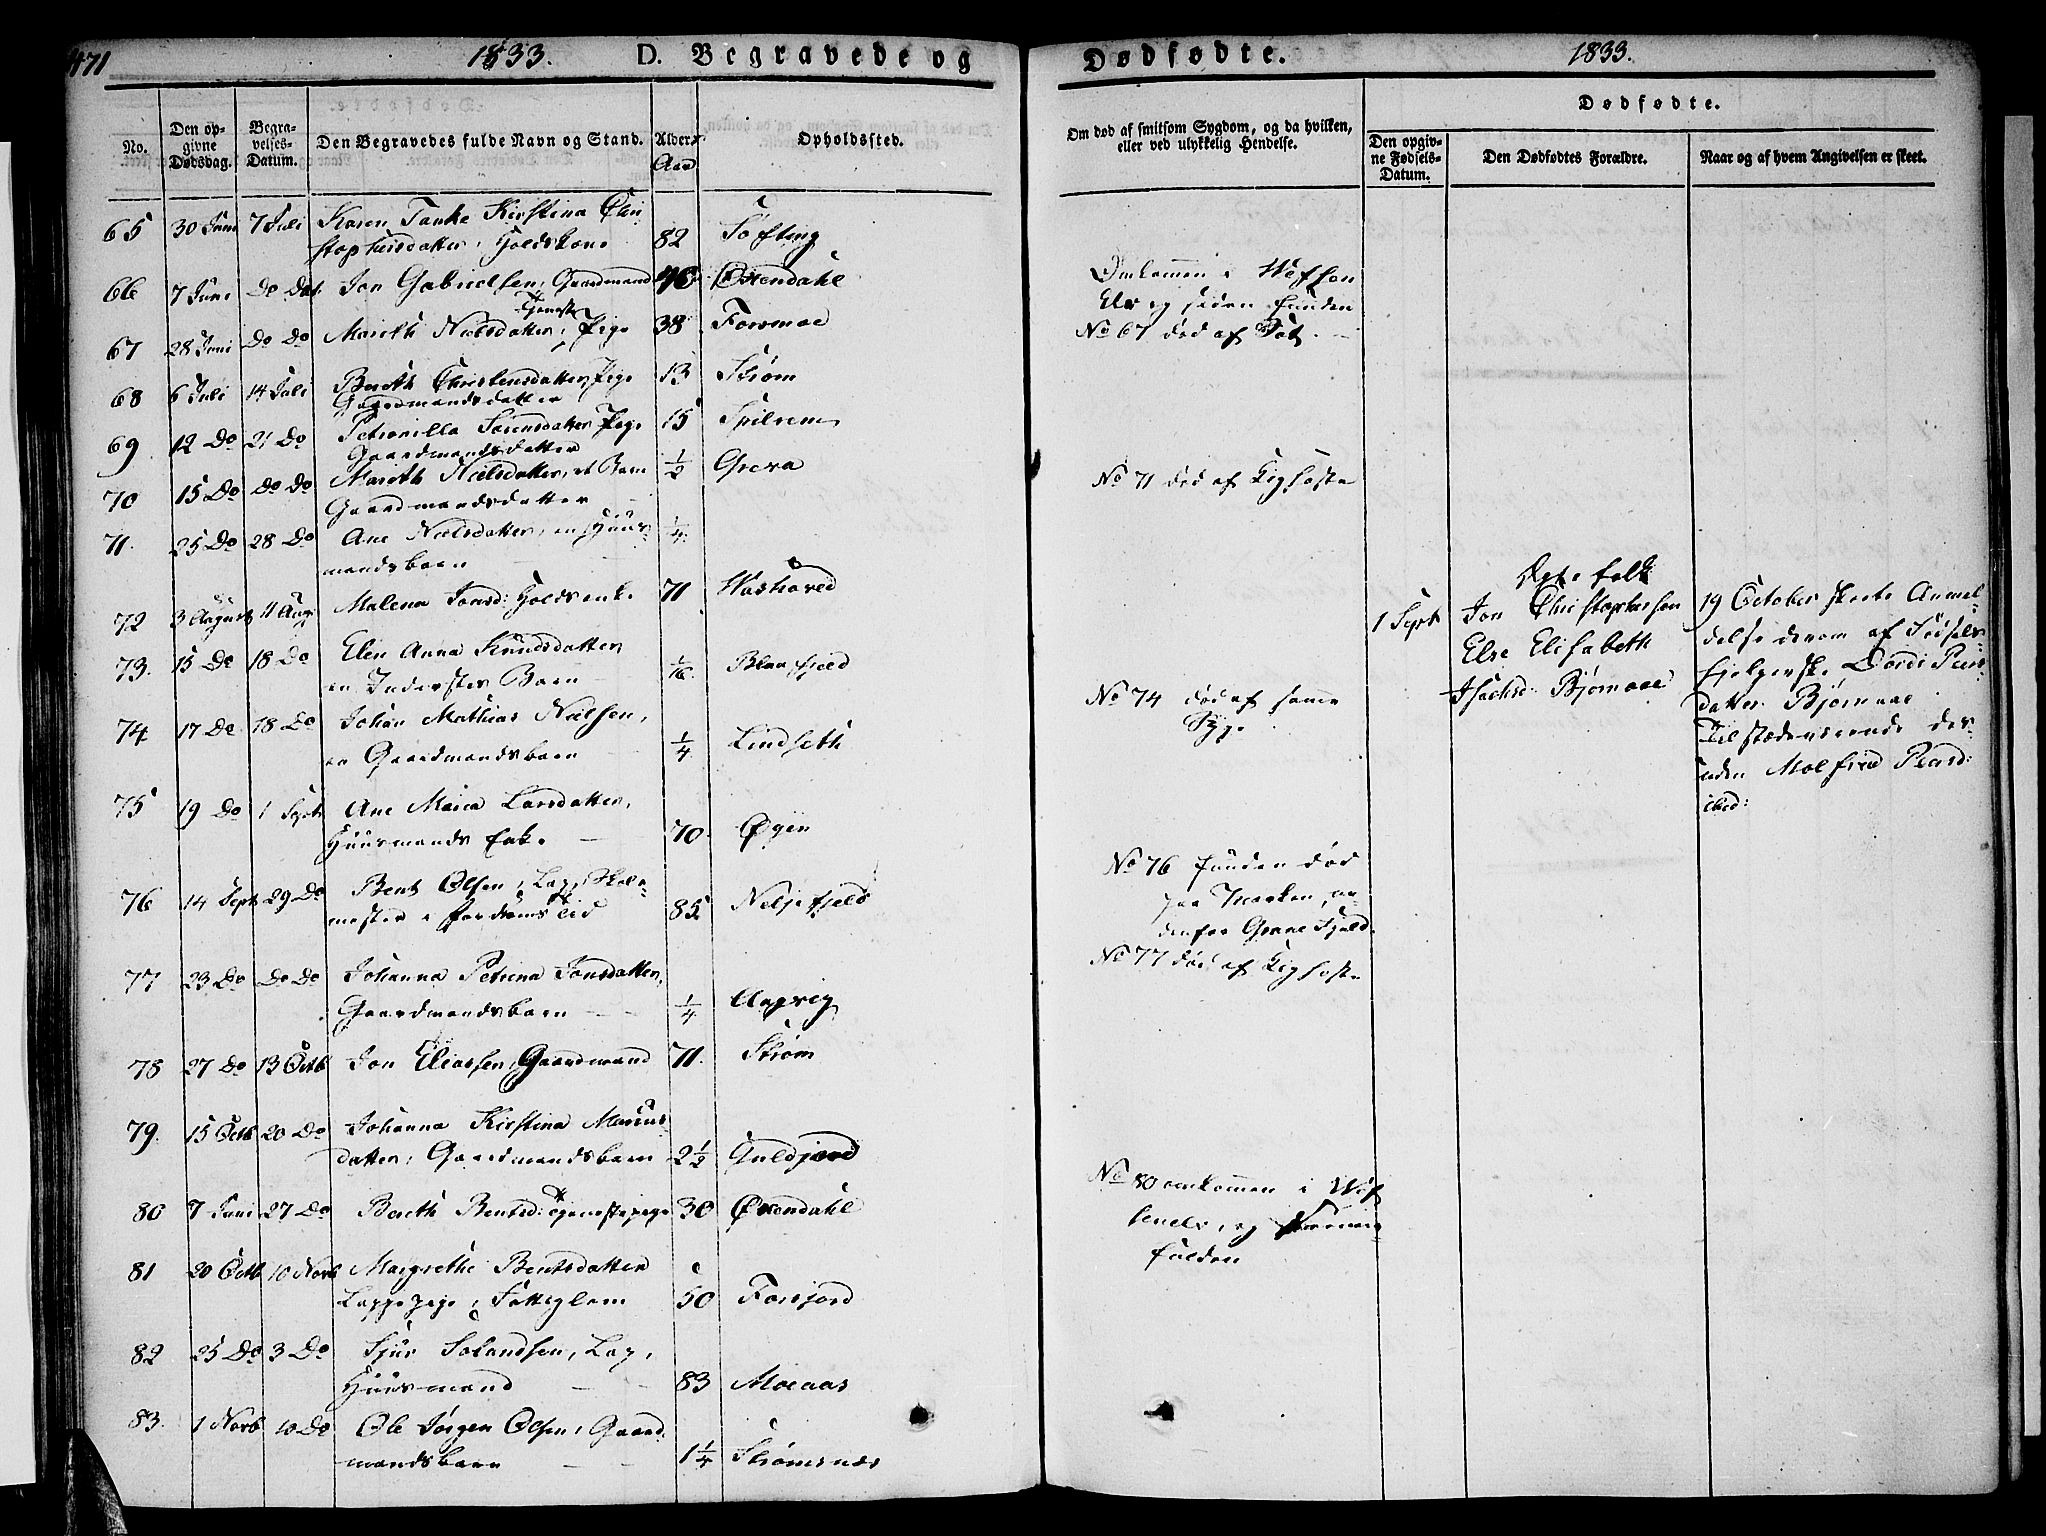 471
1833. D. Begravede og
No. Den opgivne Dødsdag. Begravelses-Datum. Den Begravedes fulde Navn og Stand. Alder. Aar Opholdssted.
65 30 Juni 7 Juli Karen Tanke Kirstina Chri
stophersdatter, Holdskone 82 Søfting
66 7 Juni Do Do Jon Gabrielsen, Gaardmand 46 Øxendahl
Tjeneste
67 28 Juni Do Do Mareth Nielsdatter, Pige 38 Forsmoe
68 6 Juli 14 Juli Bereth Christensdatter, Pige 13 Strøm
Gaardmandsdatter
69 12 Do 21 Do Petronilla Sørensdatter Pige 15 Spilrem
Gaardmandsdatter
70 15 Do Do Do Mareth Nielsdatter, et Barn 1/2 Greva
Gaardmandsdatter
71. 25 Do 28 Do Ane Nielsdatter, en Huus- 1/4
mandsbarn
72 3 August 11 Aug Malena Jonsd: Holdsenke 71 Hashoved
73. 15 Do 18 Do Elen Anna Knudsdatter
en Indersters Barn 1/16 Blaafjeld
74 17 Do 18 Do Johan Mathias Nielsen,
en Gaardmandsbarn 1/4 Lindseth
75 19 Do 1 Sept Ane Maria Larsdatter,
Huusmands Enke 70. Øyen
76 14 Sept 29 Do Bent Olsen, Lap, Skole-
mester i fordums Tid 85 Neljefjeld
77 23 Do Do Do Johanna Petrina Jonsdatter,
Gaardmandsbarn 1/4 Aapvig
78 27 Do 13 Octb Jon Eliassen, Gaardmand 71. Strøm
79. 15 Octb 20 Do Johanna Kirstina Marcus-
datter, Gaardmandsbarn 2 1/2 Guldjord
80 7 Juni 27 Do Bereth Bentsd: Tjenestepige 30 Øxendahl
81 20 Octb 10 Novb Margrethe Bentsdatter
Lappepige, Fattiglem 50 Forsjord
82 25 Do 3 Do Sjur Lap,
Huusmand 83 Moeaas
83. 1 Novb 10 Do Ole Jørgen Olsen, Gaard
mandsbarn 1 1/4 Strømsnæs
Dødfødte. 1833.
Om død af smitsom Sygdom, og da hvilken, eller ved ulykkelig Hendelse.
Dødfødte.
Den opgivne Fødsels-Datum. Den Dødfødtes Forældre. Naar og af hvem Angivelsen er skeet.
Omkommen i Wefsen
Elv og siden funden
No 67 død af
No 71 død af Kighoste
No 74 død af samme
Syge
No 76 funden død
paa Marken, ne
denfor Grane Fjeld
No 77 død af Kighoste
No 80 omkommen i Wef
senelv, og
funden
1 Sept
Ægtefolk
Jon Christophersen
Else Elisabeth
Isachsd: Bjørnaae
19 October skeete Anmel-
delse derom af Fødsels-
hjelperske Dordi Peers-
datter Bjørnaae
Tilstædeværende des-
uden Malfred Peersd:
ibid: